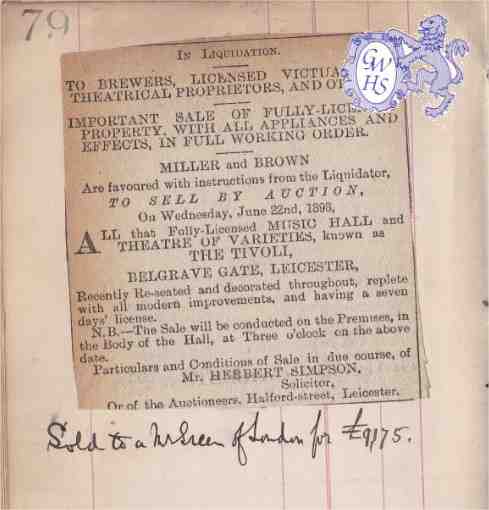 79
GWHS
IN LIQUIDATION.
TO BREWERS, LICENSED VICTUA
THEATRICAL PROPRIETORS, AND OT
IMPORTANT SALE OF FULLY-LICEN
PROPERTY, WITH ALL APPLIANCES AND
EFFECTS, IN FULL WORKING ORDER.
MILLER and BROWN
Are favoured with instructions from the Liquidator,
TO SELL BY AUCTION,
On Wednesday, June 22nd, 1898,
ALL that Fully-Licensed MUSIC HALL and
THEATRE OF VARIETIES, known as
THE TIVOLI,
BELGRAVE GATE, LEICESTER,
Recently Re-seated and decorated throughout, replete
with all modern improvements, and having a seven
days' license.
N.B.—The Sale will be conducted on the Premises, in
the Body of the Hall, at Three o'clock on the above
date.
Particulars and Conditions of Sale in due course, of
Mr. HERBERT SIMPSON,
Solicitor,
Or of the Auctioneers, Halford-street, Leicester.
Sold to a Mr Green of London for £9175.